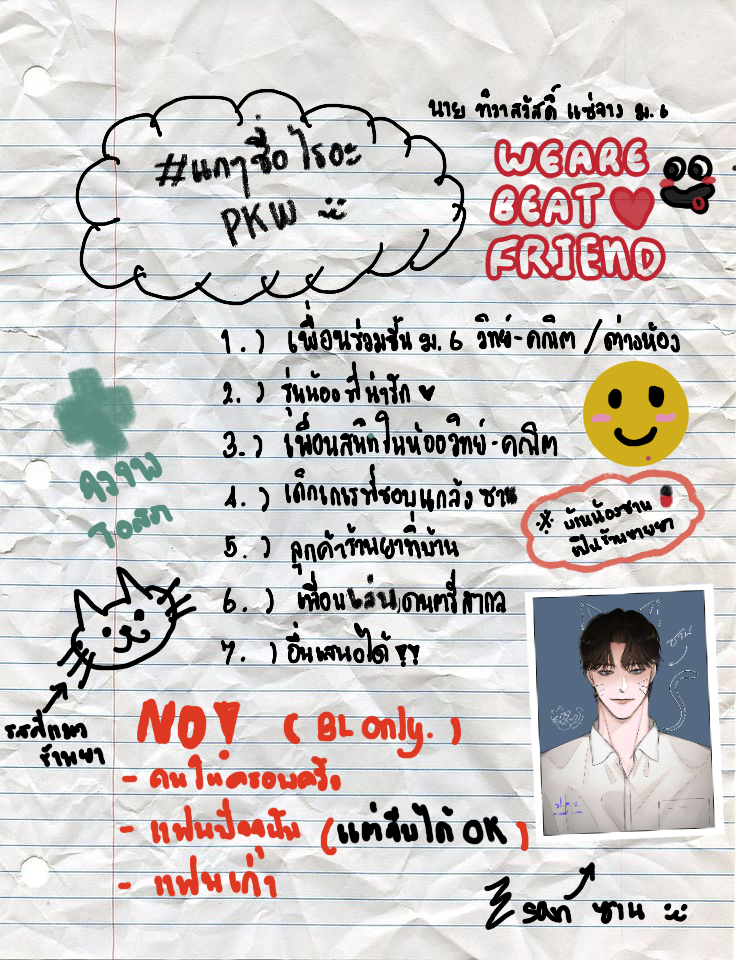 นาย ทิวาสวัสดิ์ แซ่จาง ม.6
#แกๆชื่อไรอะ
PKW
WE ARE
BEAT
FRIEND
1.) เพื่อนร่วมชั้น ม.6 วิทย์-คณิต / ต่างห้อง
2.) รุ่นน้องที่น่ารัก
3.) เพื่อนสนิทในห้องวิทย์-คณิต
4.) เด็กเกเรที่ชอบแกล้ง ซาน
5.) ลูกค้าร้านยาที่บ้าน
6.) เพื่อนเล่นดนตรีสากล
7.) อื่นเสนอได้ !!
※ บ้านน้องซาน
เป็นร้านขายยา
ร้านยา
NO! (BL only.)
- คนในครอบครัว
- แฟนปัจจุบัน (แต่จีบได้ OK)
- แฟนเก่า
ซาน
san ซาน